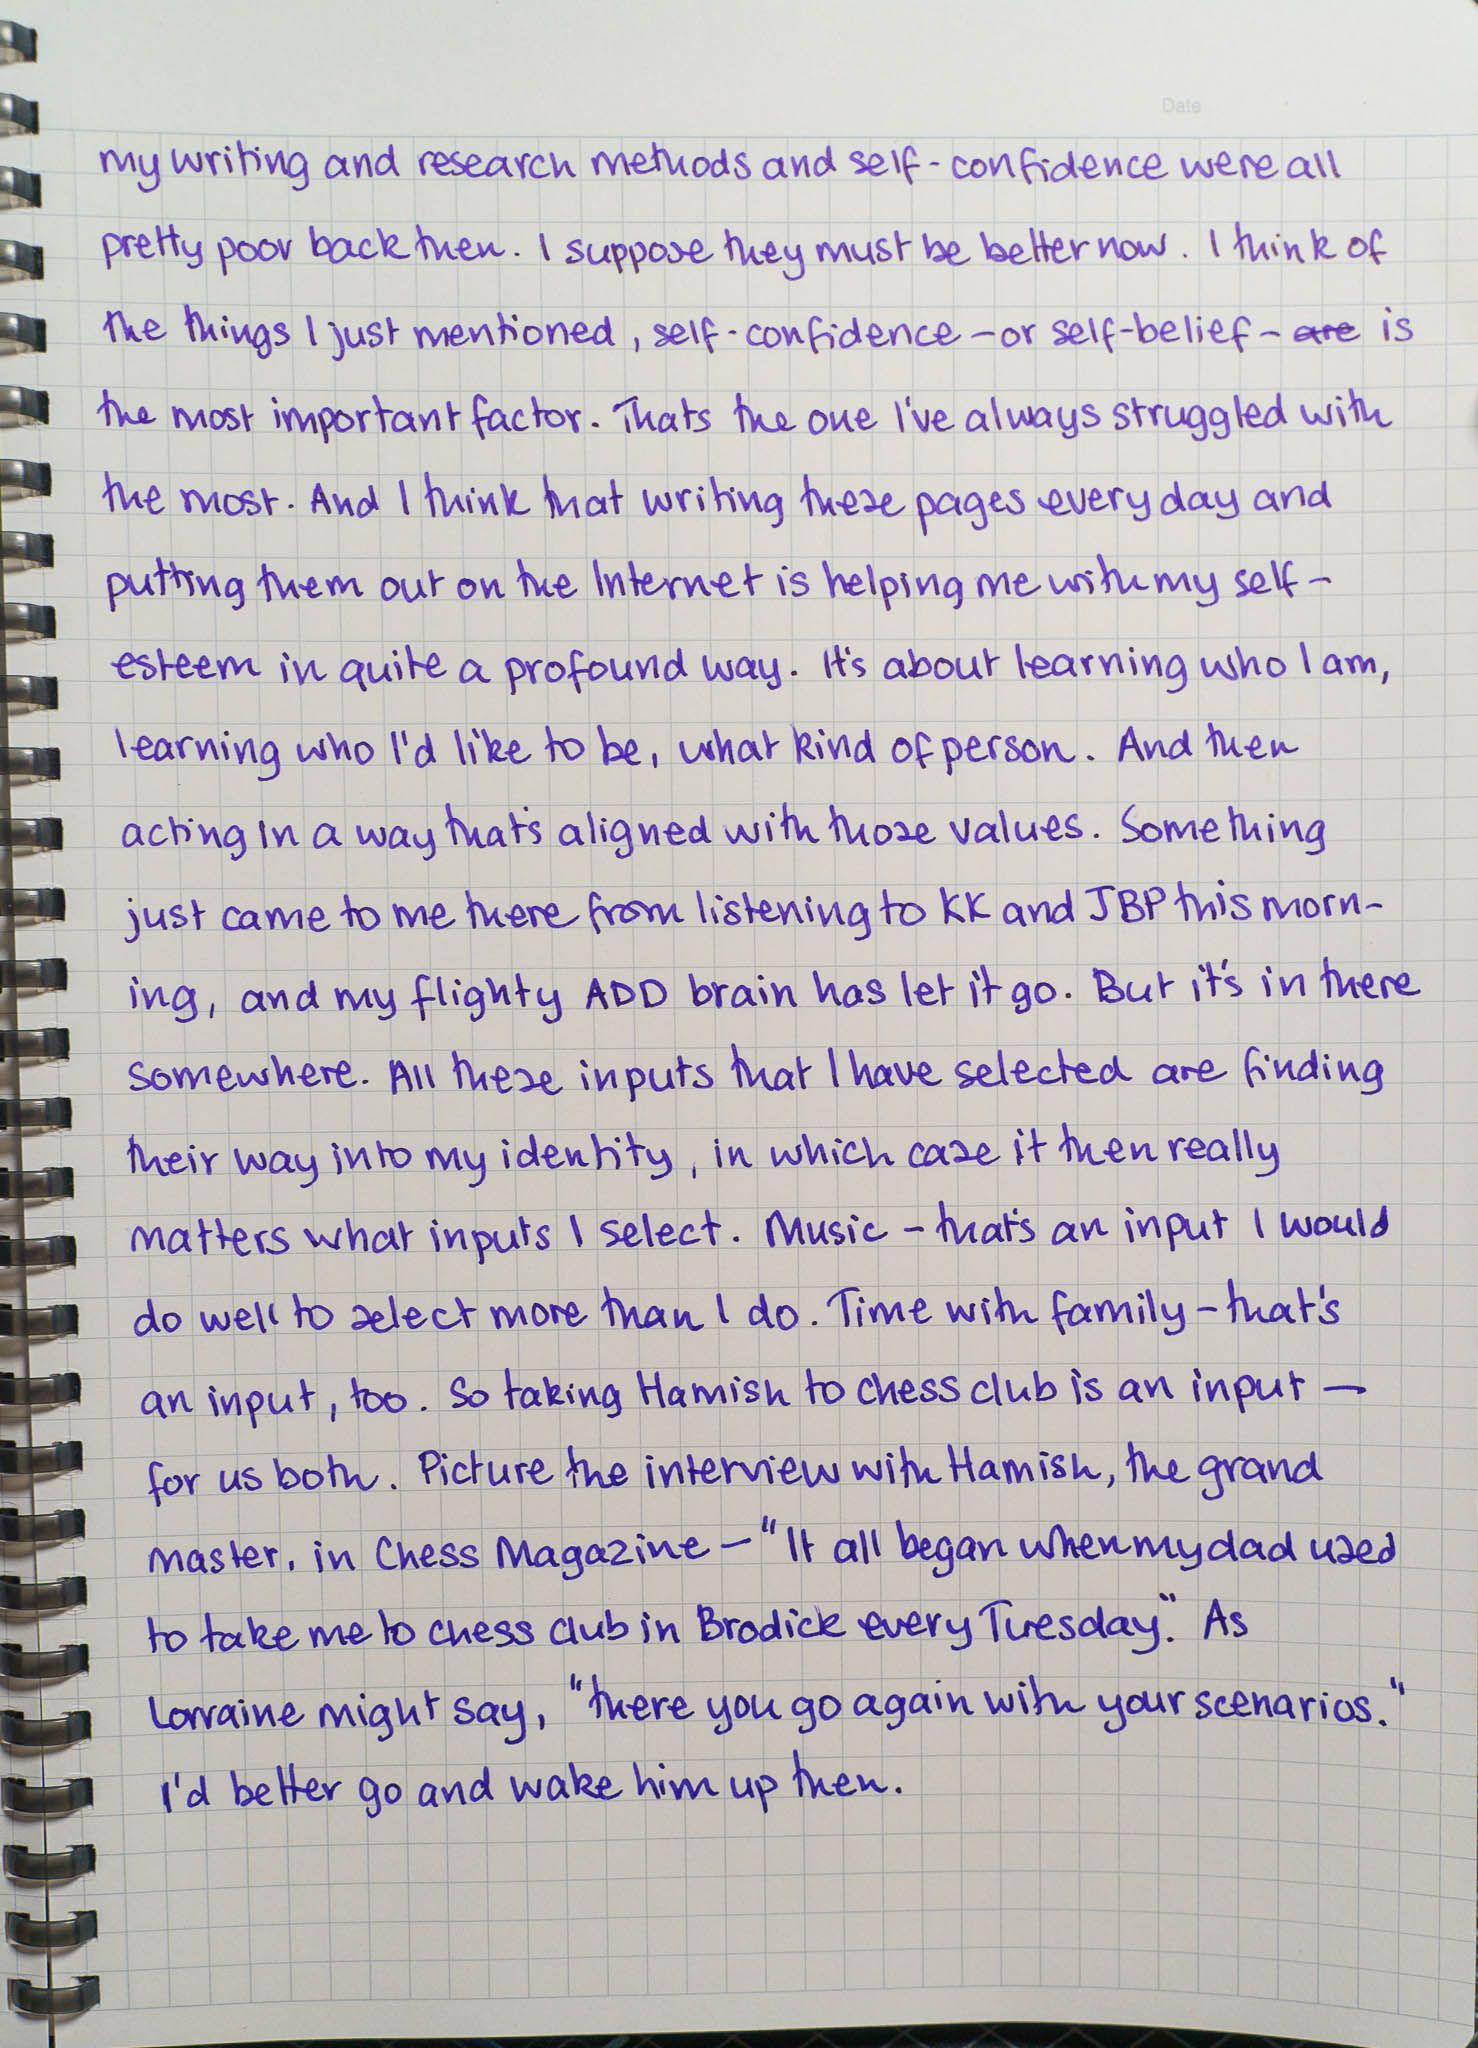 Date
my writing and research methods and self-confidence were all
pretty poor back then. I suppose they must be better now. I think of
the things I just mentioned, self-confidence – or self-belief – are is
the most important factor. Thats the one I've always struggled with
the most. And I think that writing these pages every day and
putting them out on the Internet is helping me with my self-
esteem in quite a profound way. It's about learning who I am,
learning who I'd like to be, what kind of person. And then
acting in a way that's aligned with those values. Something
just came to me there from listening to KK and JBP this morn-
ing, and my flighty ADD brain has let it go. But it's in there
somewhere. All these inputs that I have selected are finding
their way into my identity, in which case it then really
matters what inputs I select. Music – that's an input I would
do well to select more than I do. Time with family – that's
an input, too. So taking Hamish to chess club is an input –
for us both. Picture the interview with Hamish, the grand
master, in Chess Magazine – "It all began when my dad used
to take me to chess club in Brodick every Tuesday." As
Lorraine might say, "there you go again with your scenarios."
I'd better go and wake him up then.